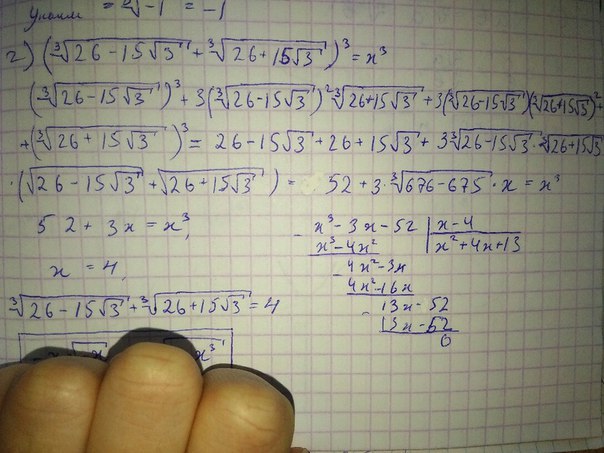 = ∛-1 = -1
2) (∛26-15√3 + ∛26+15√3)³ = x³
(∛26-15√3)³ + 3(∛26-15√3)² ∛26+15√3 + 3(∛26-15√3)(∛26+15√3)² +
+(∛26+15√3)³ = 26-15√3 + 26 + 15√3 + 3∛26-15√3 · ∛26+15√3
·(√26-15√3 + √26+15√3) = 52 + 3·∛676-675 · x = x³
52 + 3x = x³,
x = 4,
∛26-15√3 + ∛26+15√3 = 4
- x³-3x-52 | x-4
x³-4x² | x²+4x+13
- 4x²-3x
4x²-16x
- 13x-52
13x-52
0